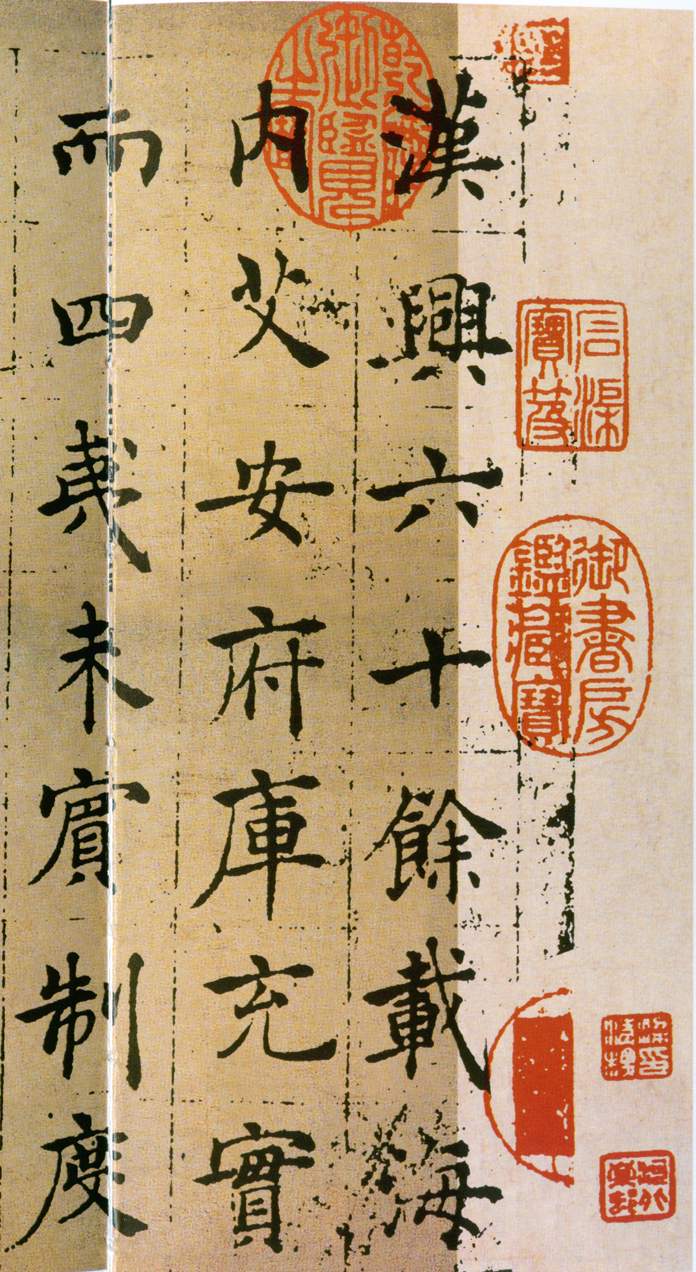 石渠
寶笈
御書房
鑑藏寶
漢興六十餘載海
乾隆
御覽
之寶
内艾安府庫充實
而四夷未賓制度